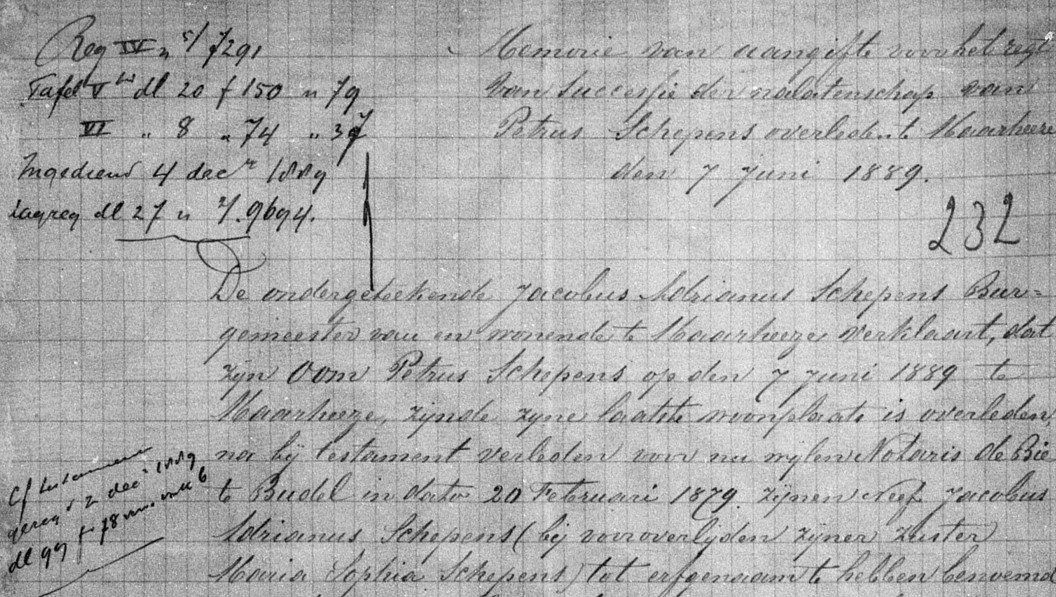 Reg IV n 5/7291
Tafel V dl 20 f 150 n 79
VI " 8 " 74 " 37
Ingediend 4 decr 1889
dagreg dl 27 n 9694.
Memorie van aangifte voor het regt
van Successie der nalatenschap van
Petrus Schepens overleden te Maarheeze
den 7 Juni 1889.
232
De ondergeteekende Jacobus Adrianus Schepens Bur=
gemeester van en wonende te Maarheeze verklaart, dat
zijn Oom Petrus Schepens op den 7 Juni 1889 te
Maarheeze, zijnde zijne laatste woonplaats is overleden,
na bij testament verleden voor nu wijlen Notaris de Bie
te Budel in dato 20 Februari 1879. zijnen Neef Jacobus
Adrianus Schepens (bij vooroverlijden zijner Zuster
Maria Sophia Schepens) tot erfgenaam te hebben benoemd
Cf testament
gereg 2 dec 1889
dl 99 f 78